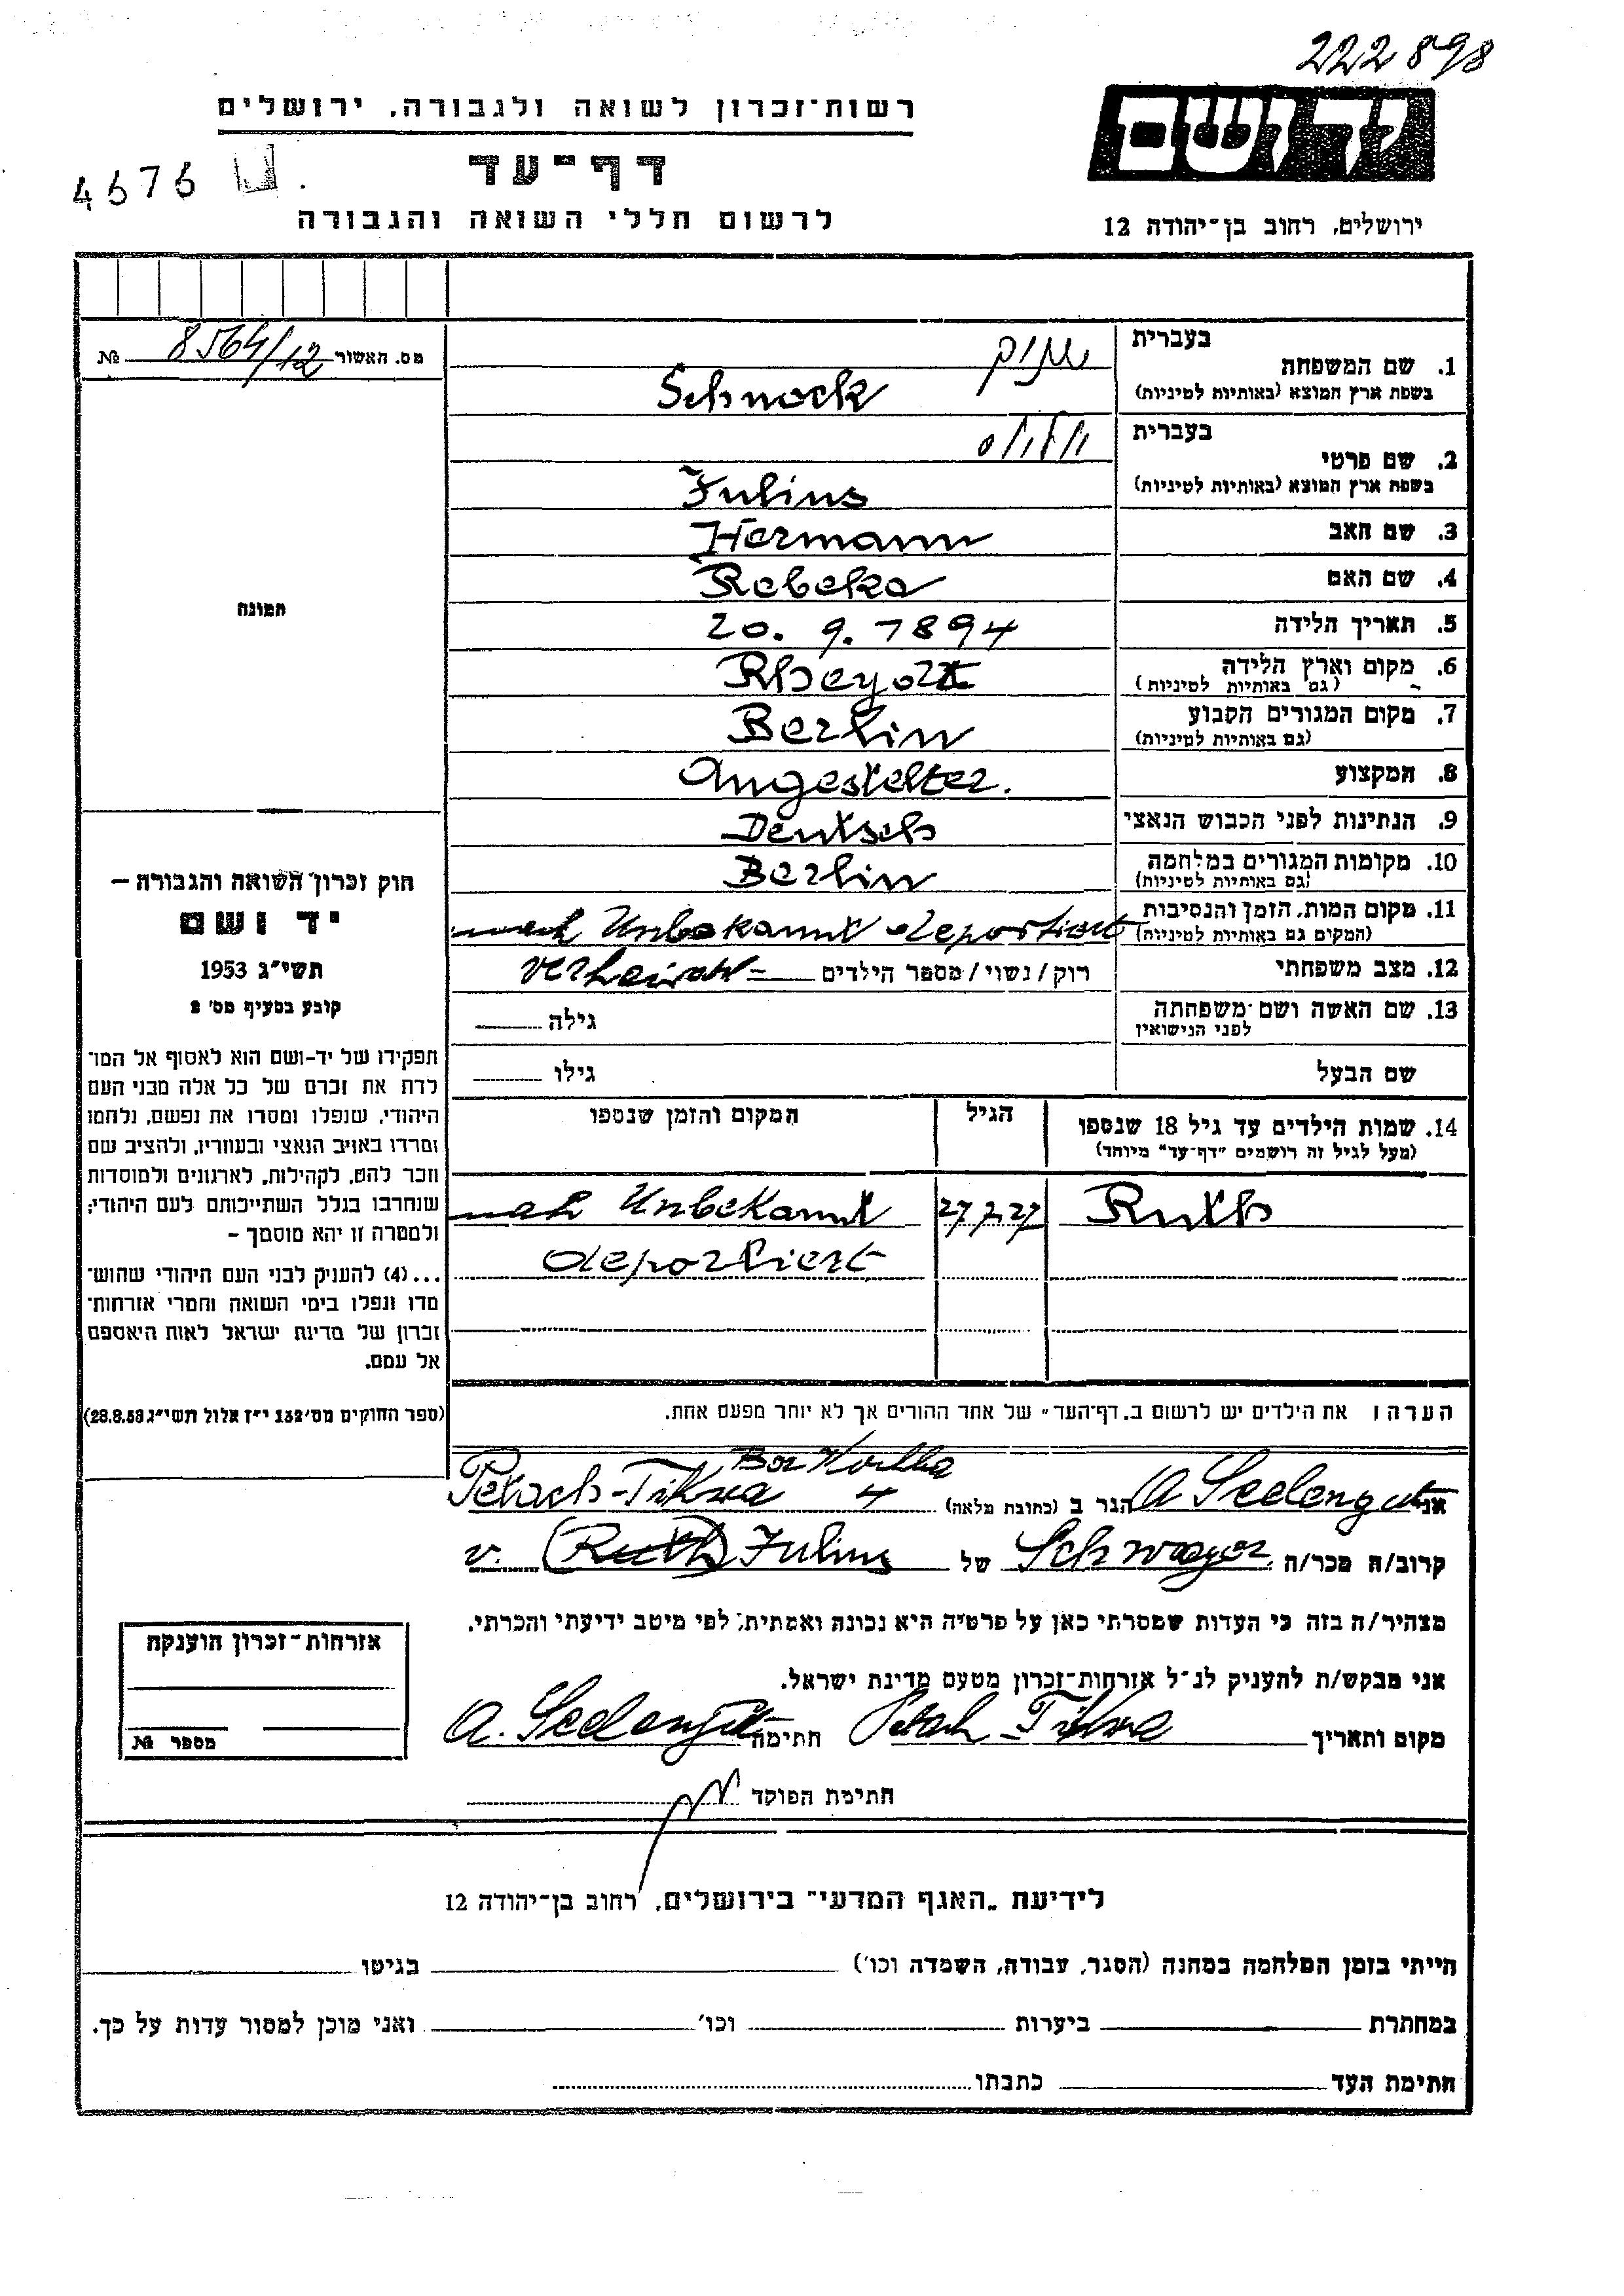 222898
רשות־זכרון לשואה ולגבורה, ירושלים
יד ושם
דף־עד
4676
לרשום חללי השואה והגבורה
ירושלים, רחוב בן־יהודה 12
בעברית
1. שם המשפחה
שנוק
(בשפת ארץ המוצא (באותיות לטיניות
Schnock
מס. האשור 8564/12 №
בעברית
יוליוס
2. שם פרטי
(בשפת ארץ המוצא (באותיות לטיניות
Julius
3. שם האב Hermann
4. שם האם Rebeka
תמונה
5. תאריך הלידה 20. 9. 1894
6. מקום וארץ הלידה
(גם באותיות לטיניות)
Rheydt
7. מקום המגורים הקבוע
(גם באותיות לטיניות)
Berlin
8. המקצוע Angestelter.
9. הנתינות לפני הכבוש הנאצי Deutsch
10. מקומות המגורים במלחמה
(גם באותיות לטיניות)
Berlin
11. מקום המות, הזמן והנסיבות
(המקום גם באותיות לטיניות)
nach Unbekannt deportiert
12. מצב משפחתי רוק/נשוי/מספר הילדים – verheirat
13. שם האשה ושם־משפחתה
לפני הנישואין
גילה
שם הבעל גילו
14. שמות הילדים עד גיל 18 שנספו
(מעל לגיל זה רושמים "דף־עד" מיוחד)
הגיל
המקום והזמן שנספו
Ruth 27.7.27 nach Unbekannt
deportiert
חוק זכרון השואה והגבורה –
יד ושם
תשי"ג 1953
קובע בסעיף מס' 2
תפקידו של יד-ושם הוא לאסוף אל המו־
לדת את זכרם של כל אלה מבני העם
היהודי, שנפלו ומסרו את נפשם, נלחמו
ומרדו באויב הנאצי ובעוזריו, ולהציב שם
וזכר להם, לקהילות, לארגונים ולמוסדות
שנחרבו בגלל השתייכותם לעם היהודי;
ולמטרה זו יהא מוסמך –
...(4) להעניק לבני העם היהודי שהוש־
מדו ונפלו בימי השואה והמרי אזרחות־
זכרון של מדינת ישראל לאות היאספם
אל עמם.
(ספר החוקים מס' 132 י"ז אלול תשי"ג 28.8.53)
הערה: את הילדים יש לרשום ב"דף־העד" של אחד ההורים אך לא יותר מפעם אחת.
אני A Seelengut הגר ב (כתובת מלאה) Petach-Tikva 4
קרוב/ה מכר/ה Schwager של Julius (Ruth) v.
מצהיר/ה בזה כי העדות שמסרתי כאן על פרטיה היא נכונה ואמתית, לפי מיטב ידיעתי והכרתי.
אני מבקש/ת להעניק לנ"ל אזרחות־זכרון מטעם מדינת ישראל.
מקום ותאריך Petach-Tikva חתימה A. Seelengut
חתימת הפוקד
אזרחות־זכרון הוענקה
מספר №
לידיעת "האגף המדעי" בירושלים, רחוב בן־יהודה 12
הייתי בזמן המלחמה במחנה (הסגר, עבודה, השמדה וכו') בגיטו
במחתרת ביערות וכו' ואני מוכן למסור עדות על כך.
חתימת העד כתבתו